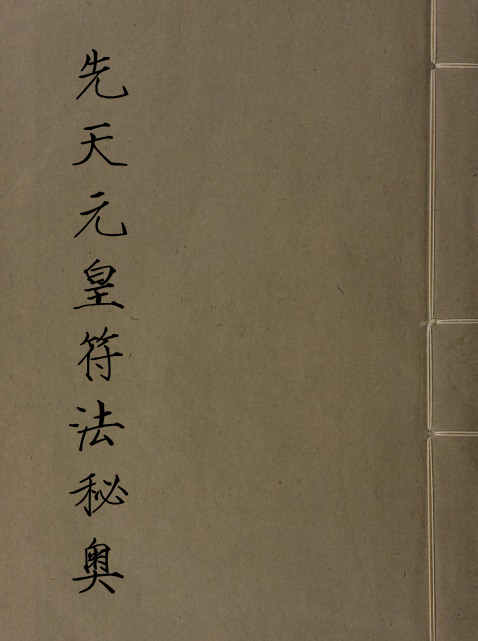 先天元皇符法秘奥